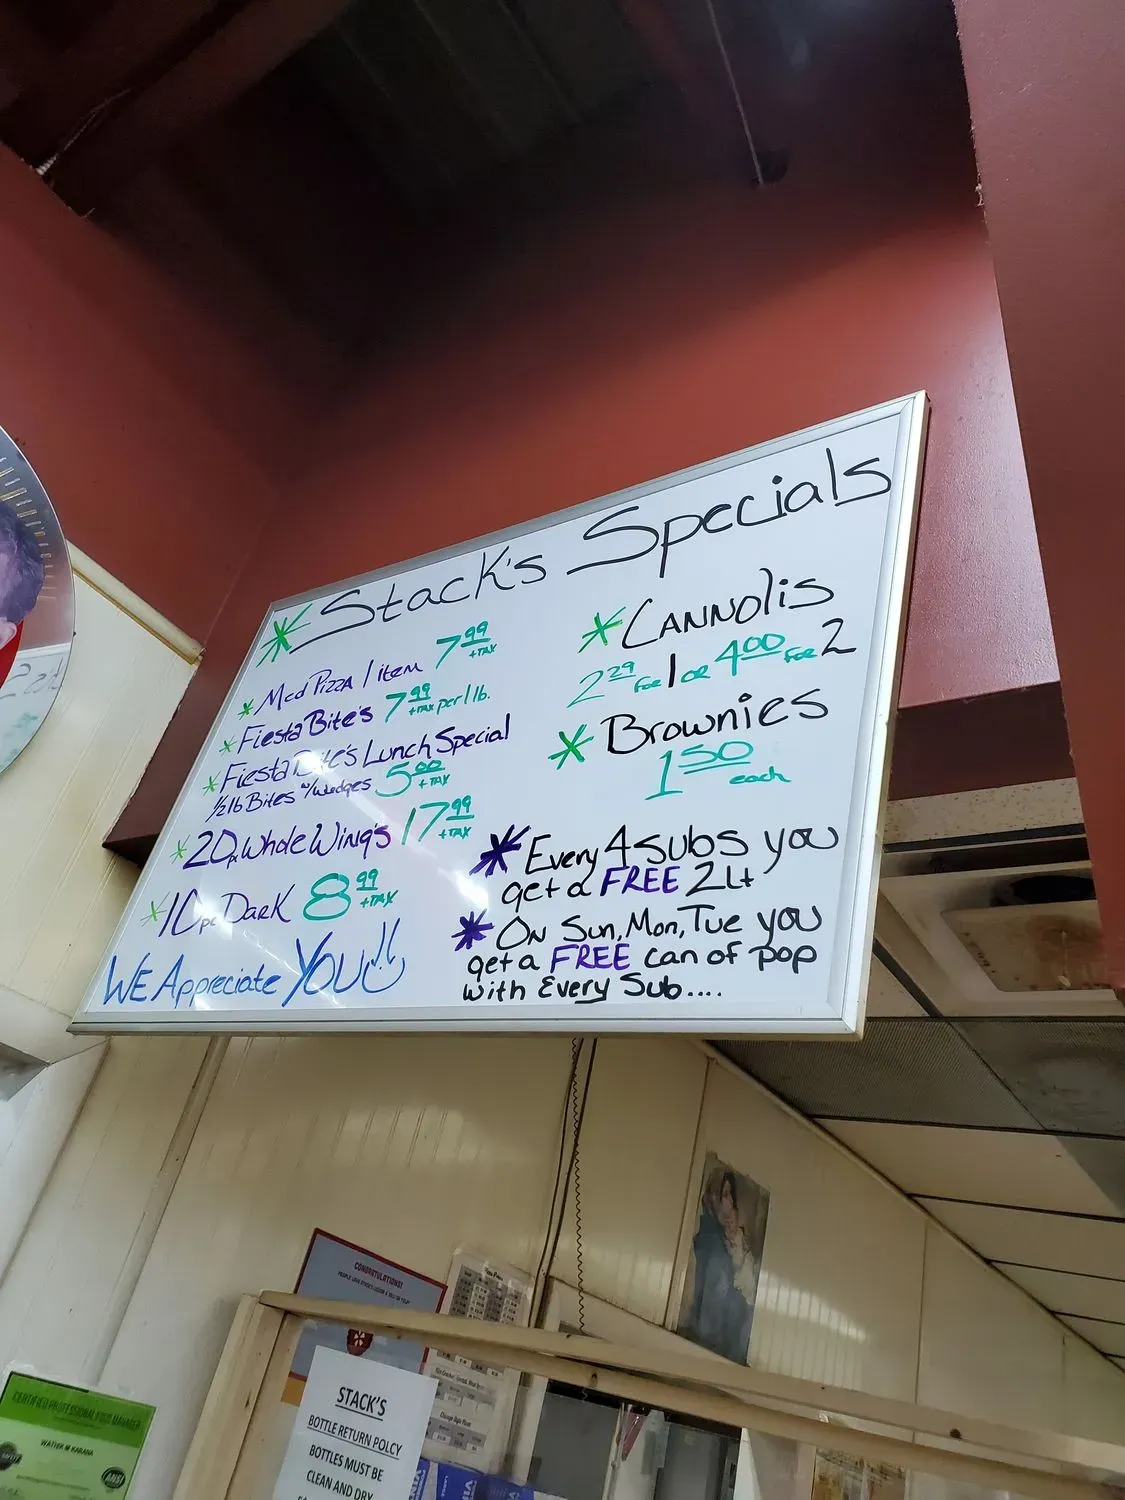 Stack's Specials
Med Pizza 1 item 7.99 +TAX
Fiesta Bite's 7.99 +TAX per/lb.
Fiesta Bite's Lunch Special
1/2 lb Bites w/wedges 5.00 +TAX
20pc Whole Wing's 17.99 +TAX
10pc Dark 8.99 +TAX
WE Appreciate YOU!!
CANNOlis
2.29 for 1 or 4.00 for 2
Brownies
1.50 each
Every 4 subs you
get a FREE 2Lt
On Sun, Mon, Tue you
get a FREE can of pop
with Every Sub....
CONGRATULATIONS!
STACK'S
BOTTLE RETURN POLCY
BOTTLES MUST BE
CLEAN AND DRY
CERTIFIED PROFESSIONAL FOOD MANAGER
ANSI